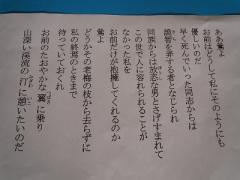 ああ鶯よ
お前はどうして私にそのようにも
優しいのだ
早く死んでいった同志からは
詭智を弄する者となじられ
同族からは放恣な男とさげすまれて
この世で人に容れられることが
なかった私を
お前だけが抱擁してくれるのか
鶯よ
どうかその老梅の枝から去らずに
私の終焉のときまで
待っていておくれ
お前のたおやかな翼に乗り
山深い渓流の汀に憩いたいのだ